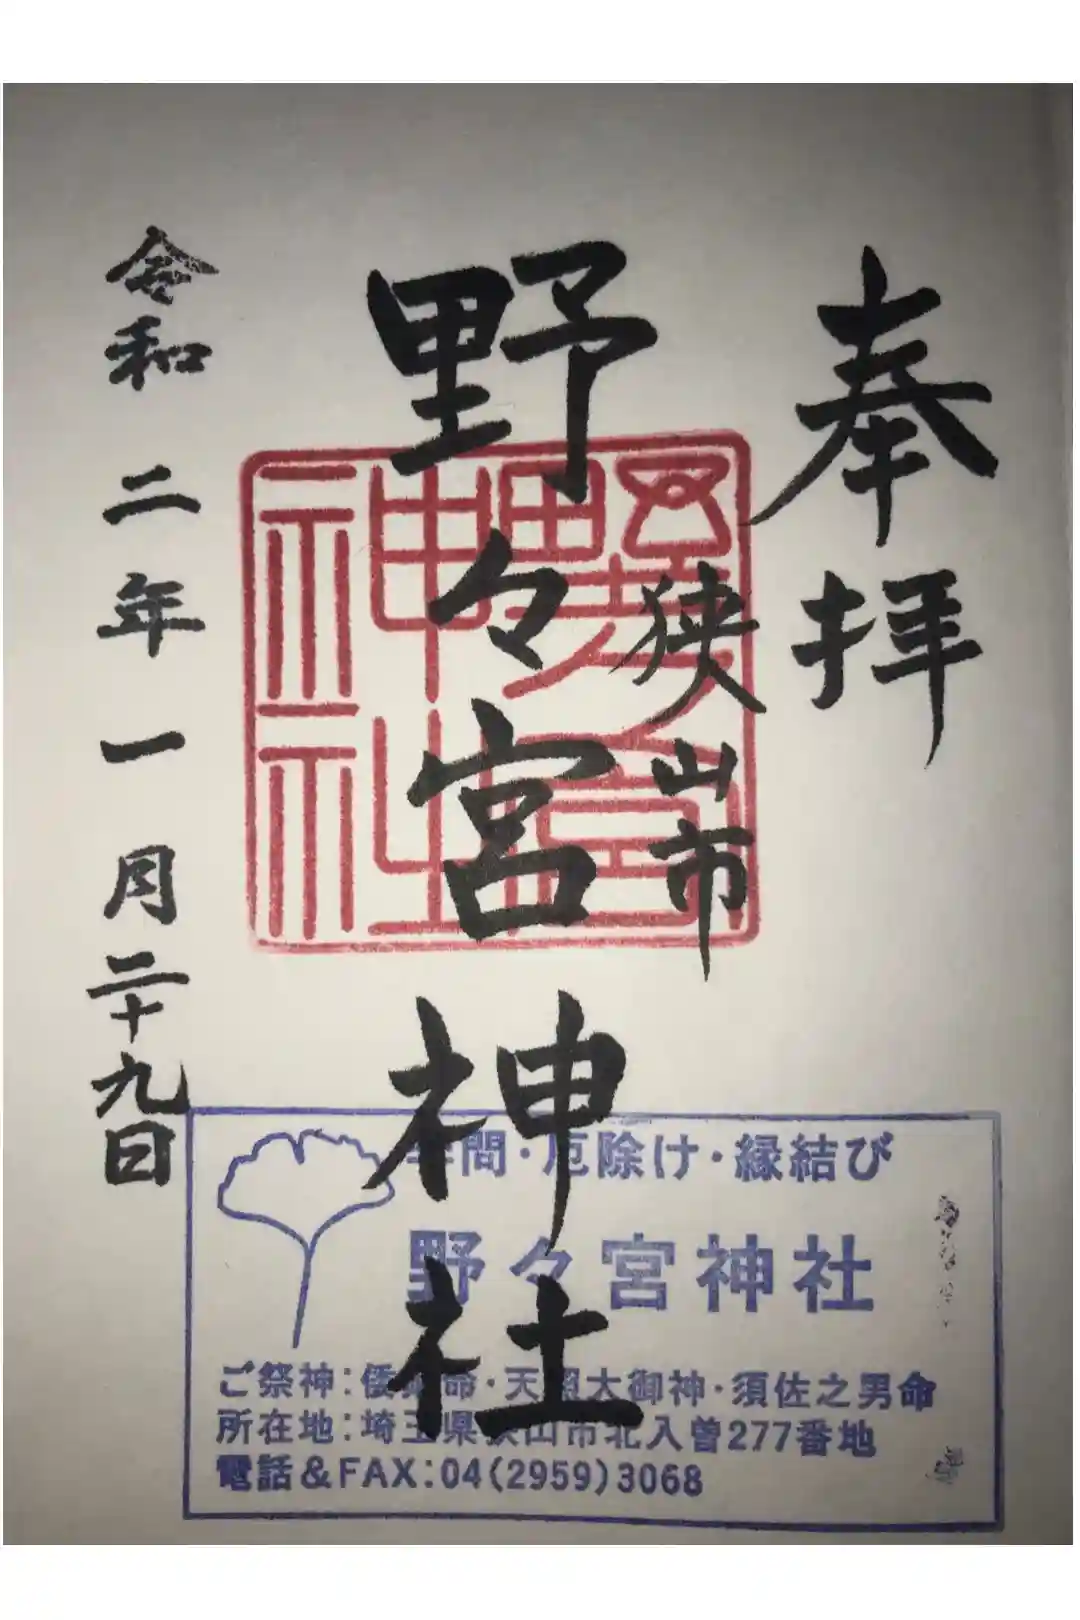 奉拝
狭山市
野々宮神社
令和二年一月二十九日
野々宮神社
問・厄除け・縁結び
野々宮神社
ご祭神：倭 命・天照大御神・須佐之男命
所在地：埼玉県狭山市北入曽277番地
電話&FAX：04(2959)3068